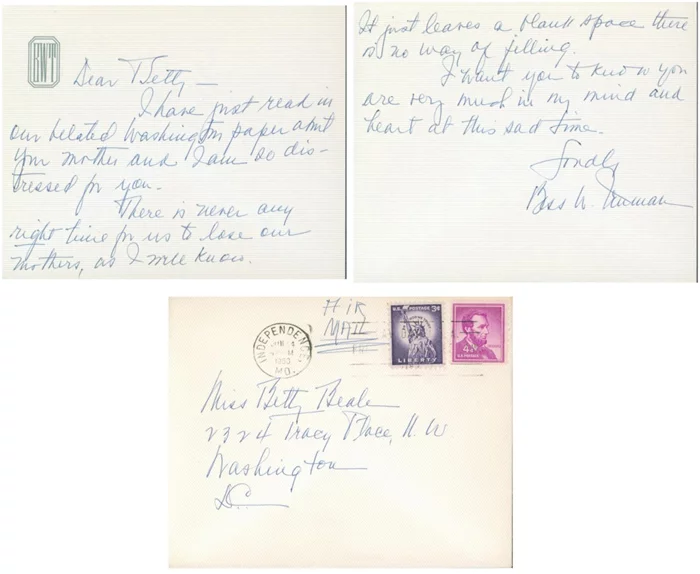 BWT
Dear Betty —
I have just read in
our belated Washington paper about
your mother and I am so dis-
tressed for you.
There is never any
right time for us to lose our
mothers, as I well know.
It just leaves a blank space there
is no way of filling.
I want you to know you
are very much in my mind and
heart at this sad time.
Fondly
Bess W. Truman
Air
Mail
INDEPENDENCE,
MO.
U.S. POSTAGE 3¢
LIBERTY
4¢
U.S. POSTAGE
Miss Betty Beale
2324 Tracy Place, N.W.
Washington
D.C.